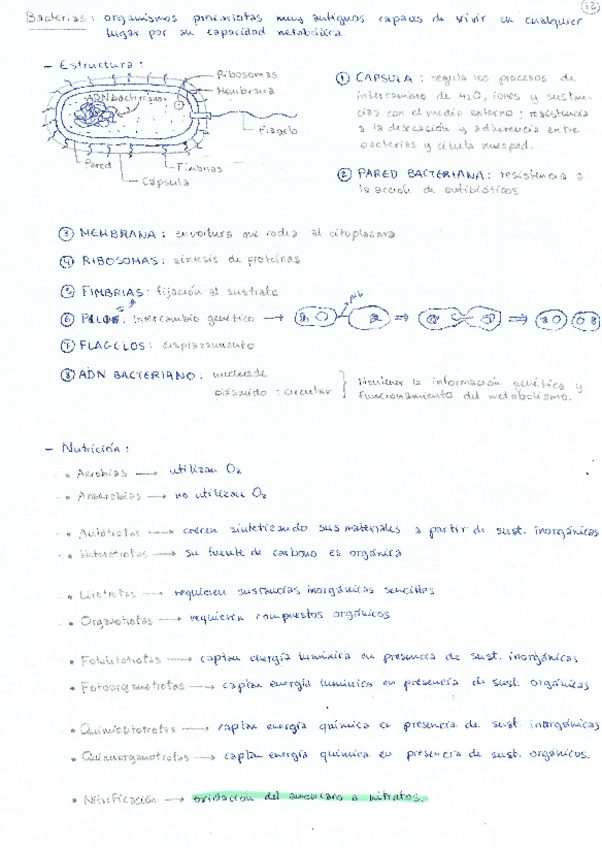 13
Bacterias: organismos procariotas muy antiguos capaces de vivir en cualquier
lugar por su capacidad metabólica.
- Estructura:
Ribosomas
Membrana
ADN bacteriano
Flagelo
Pared
Fimbrias
Cápsula
① CÁPSULA: regula los procesos de
intercambio de H₂O, iones y sustan-
cias con el medio externo; resistencia
a la desecación y adherencia entre
bacterias y célula huésped.
② PARED BACTERIANA: resistencia a
la acción de antibióticos
③ MEMBRANA: envoltura que rodea al citoplasma
④ RIBOSOMAS: síntesis de proteínas
⑤ FIMBRIAS: fijación al sustrato
⑥ PILOS: Intercambio genético → pili ⇒ ⇒
⑦ FLAGELOS: desplazamiento
⑧ ADN BACTERIANO: nucleoide
plásmido: circular
Mantener la información genética y
funcionamiento del metabolismo.
- Nutrición:
• Aerobias → utilizan O₂
• Anaerobias → no utilizan O₂
• Autótrofas → crecen sintetizando sus materiales a partir de sust. inorgánicas
• Heterótrofas → su fuente de carbono es orgánica
• Litotrofas → requieren sustancias inorgánicas sencillas
• Organotrofas → requieren compuestos orgánicos
• Fotolitotrofas → captan energía lumínica en presencia de sust. inorgánicas
• Fotoorganotrofas → captan energía lumínica en presencia de sust. orgánicas
• Quimiolitotrofas → captan energía química en presencia de sust. inorgánicas
• Quimiorganotrofas → captan energía química en presencia de sust. orgánicos.
• Nitrificación → oxidación del amoniaco a nitratos.